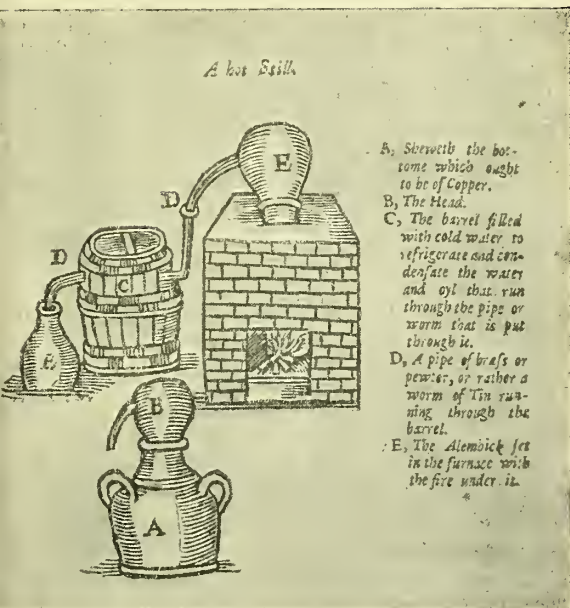 A hot Still.
A, Sheweth the bot-
tome which ought
to be of Copper.
B, The Head.
C, The barrel filled
with cold water to
refrigerate and con-
densate the water
and oyl that run
through the pipe or
worm that is put
through it.
D, A pipe of brass or
pewter, or rather a
worm of Tin run-
ning through the
barrel.
E, The Alembick set
in the furnace with
the fire under it.
E
D
D
C
B
A